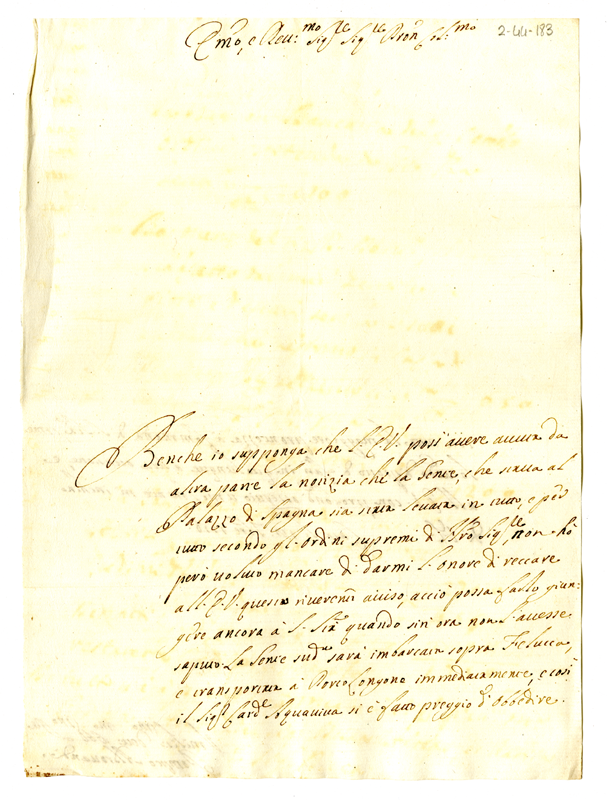 Em̃o, e Reu:mo Sig.re Sig.re Pron Col:mo 2-44-183
Benche io supponga che l'E.V. possi avere avuta da
altra parte la notizia che la Gente, che stava al
Palazzo di Spagna sia stata levata in tutto, e per
tutto secondo gl'ordini supremi di Nro Sig.re non hò
però voluto mancare di darmi l'onore di reccare
all'E.V. questo riverente aviso, acciò possa farlo giun-
gere ancora à S. Stà quando sin'ora non l'avesse
saputo. La Gente sud.a sarà imbarcata sopra Felucca,
e transportata à Porto Longone immediatamente, e così
il Sig.r Card.e Aquaviva si è fatto preggio di obbedire.